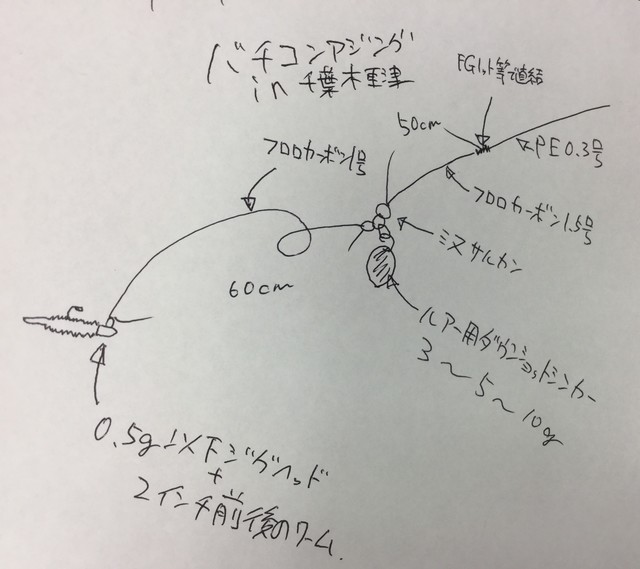 バチコンアジング
in 千葉木更津
FGノット等で直結
50cm
PE0.3号
フロロカーボン1号
フロロカーボン1.5号
ミヌサルカン
60cm
ルアー用ダウンショットシンカー
3～5～10g
0.5g以下ジグヘッド
+
2インチ前後のワーム.